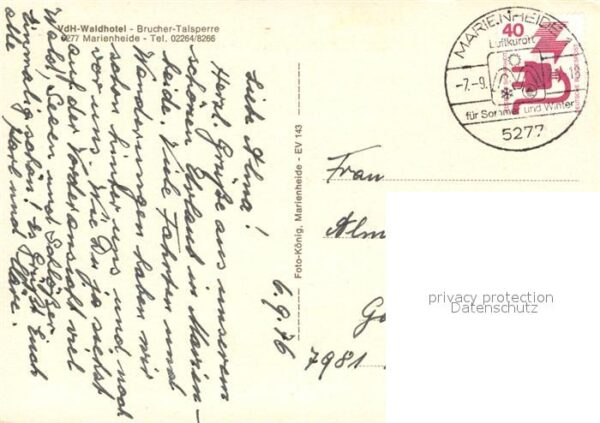 VdH-Waldhotel - Brucher-Talsperre
5277 Marienheide - Tel. 02264/8266
6.9.76
Liebe Alma!
Herzl. Grüße aus unserem
schönen Urlaub in Marien-
heide. Viele Fahrten und
Wanderungen haben wir
schon hinter uns und noch
vor uns. Wie Du ja siehst
auf der Vorderansicht viel
Wald, Seen und Schlößer
Einmalig schön! Es grüßt Euch
alle Karl und Klara.
Foto-König, Marienheide - EV 143
MARIENHEIDE
Luftkurort
-7.-9.
für Sommer und Winter
5277
40
DEUTSCHE BUNDESPOST
Frau
Alm
Ga
7981
privacy protection
Datenschutz